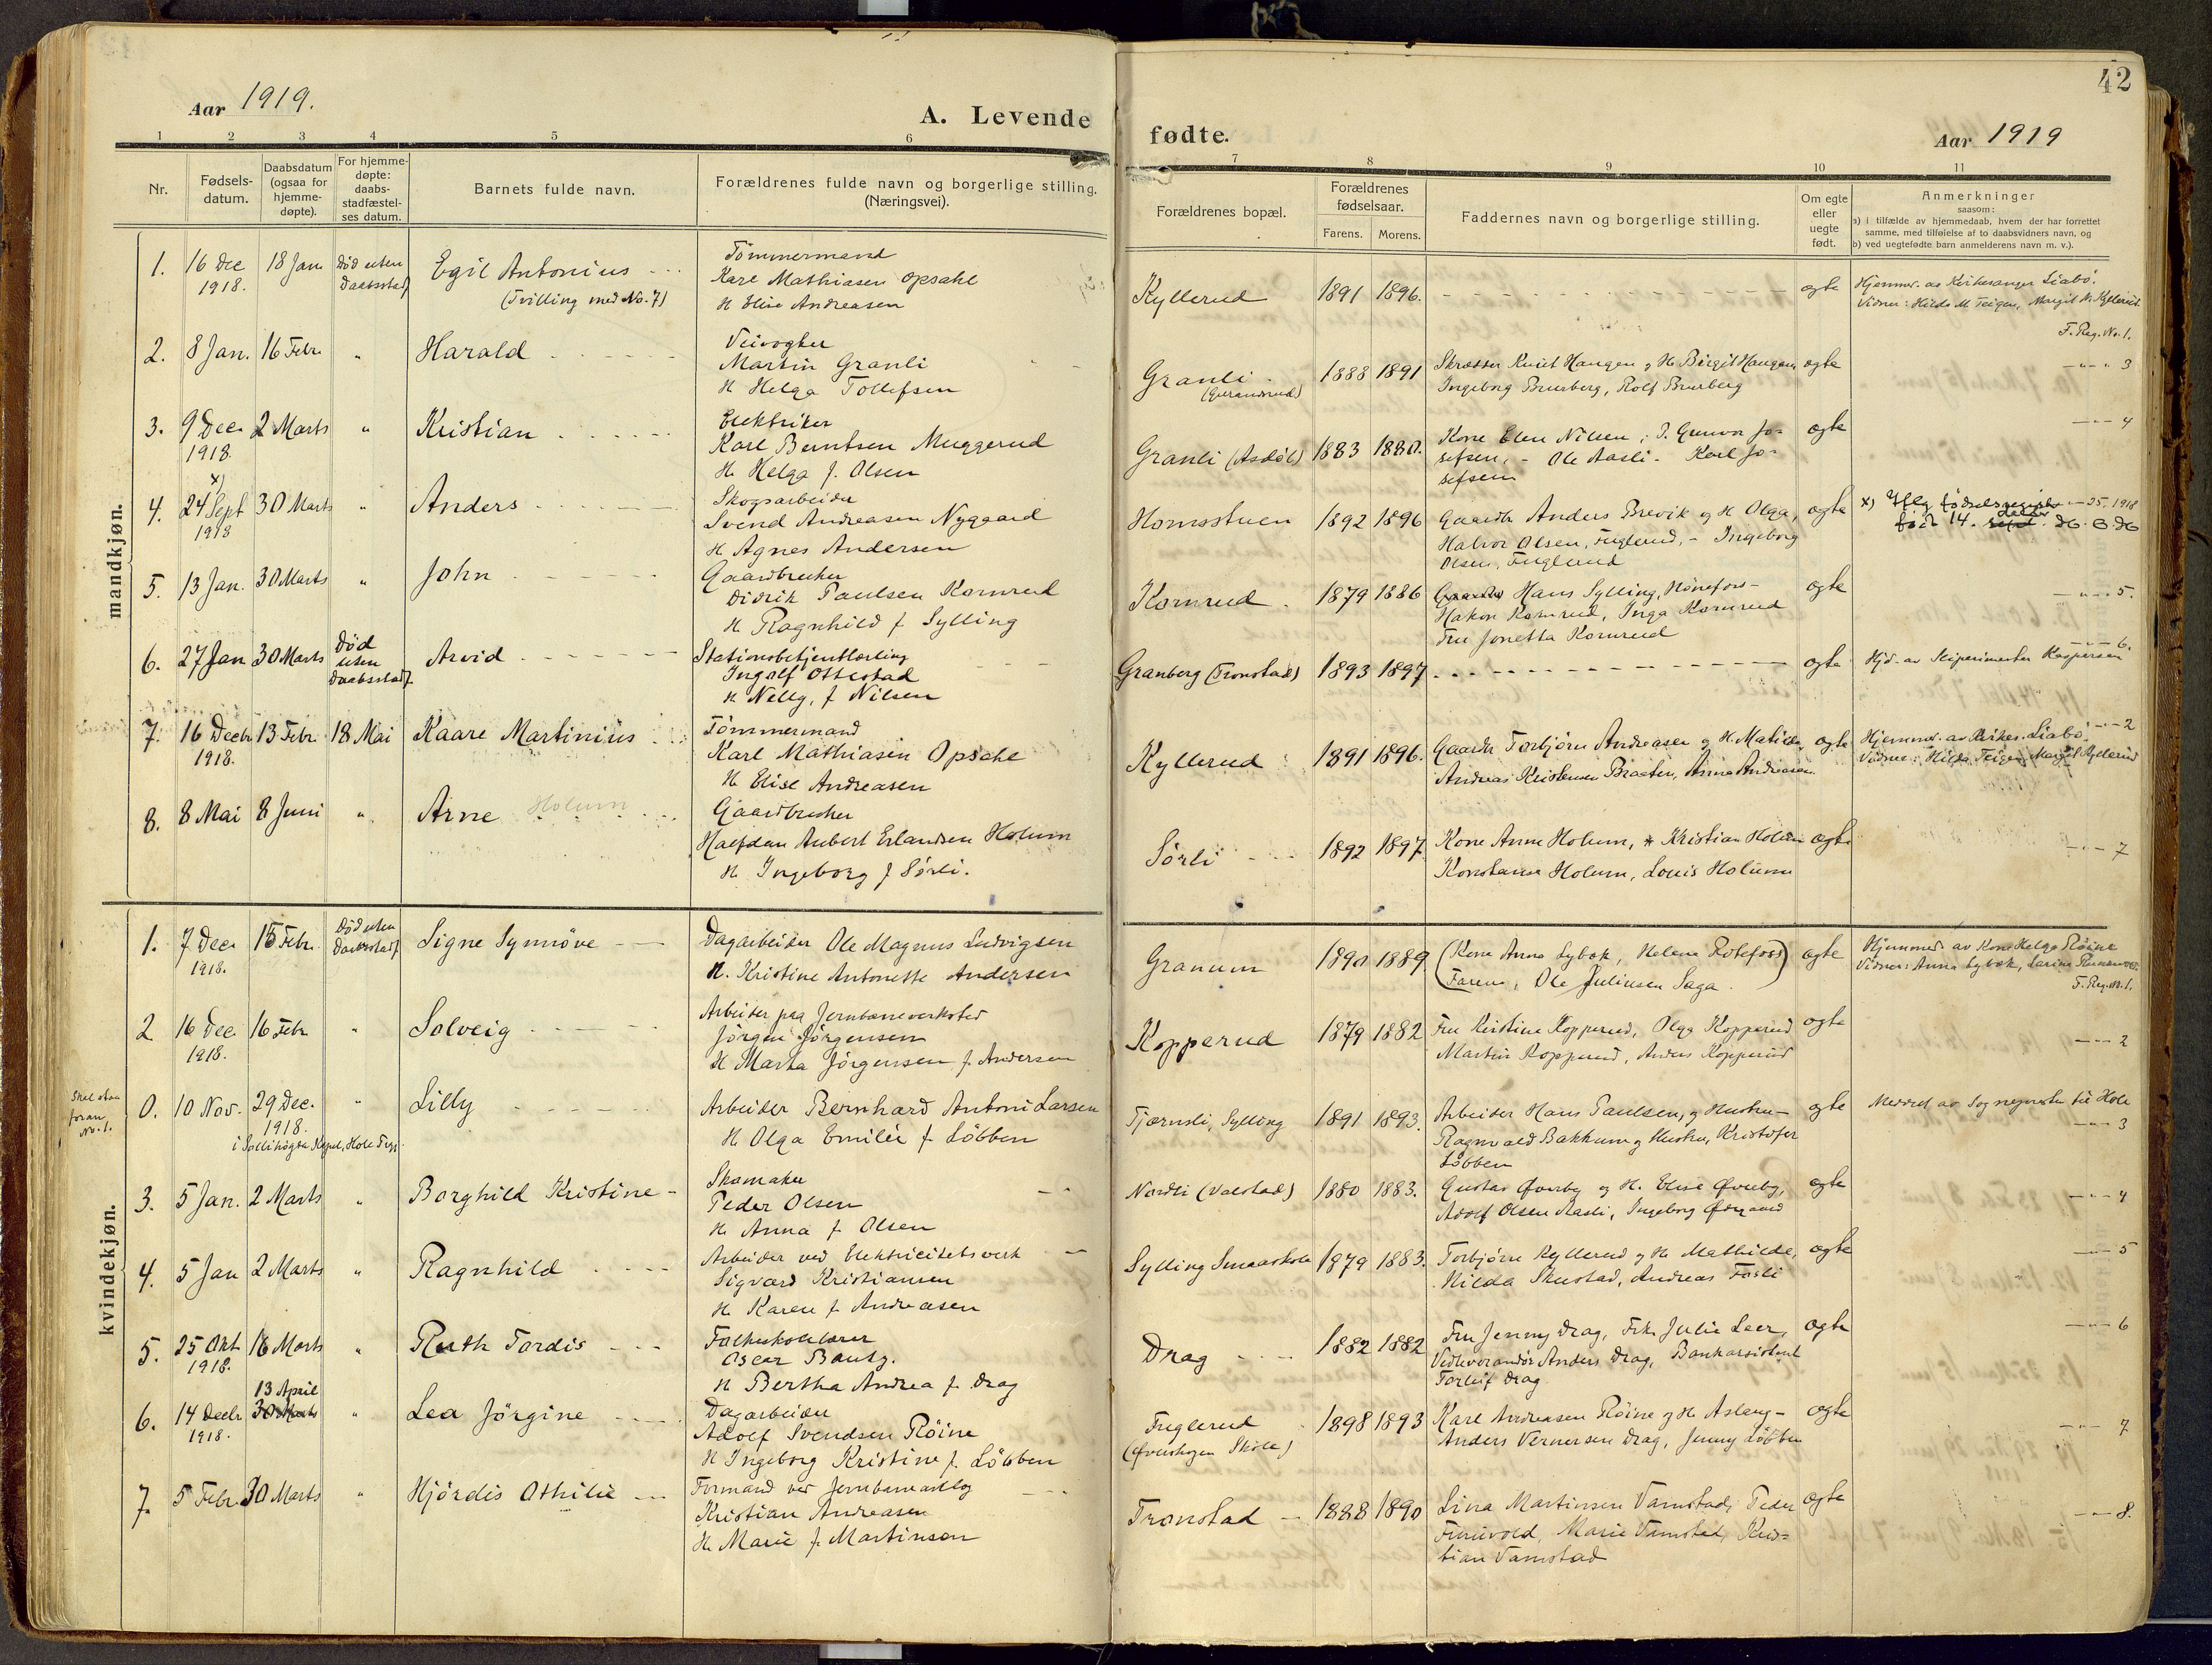 42
Aar 1919.
A. Levende fødte.
Aar 1919
1 2 3 4 5 6 7 8 9 10 11
Nr.
Fødsels-
datum.
Daabsdatum
(ogsaa for
hjemme-
døpte).
For hjemme-
døpte:
daabs-
stadfæstel-
ses datum.
Barnets fulde navn.
Forældrenes fulde navn og borgerlige stilling.
(Næringsvei).
Forældrenes bopæl.
Forældrenes
fødselsaar.
Farens. Morens.
Faddernes navn og borgerlige stilling.
Om egte
eller
uegte
født.
Anmerkninger
saasom:
a) i tilfælde av hjemmedaab, hvem der har forrettet
samme, med tilføielse af to daabsvidners navn, og
b) ved uegtefødte barn anmelderens navn m. v.).
mandkjøn.
1. 16 Dec 18 Jan Død uten Egil Antonius Tømmermand
1918. Daabsstadf (Tvilling med No. 7) Karl Mathiasen Opsahl
H Elise Andreasen
Kyllerud 1891 1896. egte Hjemmed. av Kirkesanger Liabø.
Vidner: Hilda M Teigen, Margit M. Kyllerud
F. Reg. No. 1.
2. 8 Jan. 16 Febr. " Harald Veivogter
Martin Granli
H Helga Tollefsen
Granli 1888 1891 Skrædder Knut Haugen og H. Birgit Haugen egte " 3
Ingeborg Bruberg, Rolf Bruberg
3. 9 Dec. 2 Marts " Kristian Elektriker
1918 Karl Berntsen Muggerud
H. Helga f. Olsen
Granli (Asdøl) 1883 1880. Kone Elen Nilsen, P. Gunvor Jo- egte " 4
sefsen, - Ole Aasli - Karl Jo-
sefsen
x)
4. 24 Sept 30 Marts " Anders Skogsarbeider
1918 Svend Andreasen Nygaard
H. Agnes Andersen
Homsstuen 1892 1896 Gaardbr Anders Brevik og H. Olga, egte x) Ifølg fødselsregister " 25, 1918
Halvor Olsen, Fuglerud, - Ingeborg født 14.
Olsen, Fuglerud
5. 13 Jan. 30 Marts " John Gaardbruker
Didrik Paulsen Kornrud
H. Ragnhild f Sylling
Kornrud 1879 1886 Gaardbr Hans Sylling, Hønefoss - egte " 5.
Hakon Kornrud, Inga Kornrud
Fru Jonetta Kornrud
6. 27 Jan 30 Marts Død Arvid Stationsbetjentlærling
uten Ingolf Ottestad
Daabsstadf. H Nelly, f Nilsen
Granberg (Tronstad) 1893 1897 egte Hjd. av Kaspersen 6.
7. 16 Decbr 13 Febr. 18 Mai Kaare Martinius Tømmermand
1918. Karl Mathiasen Opsahl
H Elise Andreasen
Kyllerud 1891 1896. Gaardbr Torbjørn Andreasen og H. Matilde, egte Hjemmed. av Kirkes. Liabø. " 2
Andreas Kristensen Braaten, Anna Andreasen Vidner: Hilda Teigen, Margit Kyllerud
8. 8 Mai 8 Juni " Arne Holum Gaardbruker
Halfdan Aubert Erlandsen Holum
H Ingeborg f Sørli.
Sørli 1892 1897 Kone Anne Holum, Kristian Holum egte " 7
Konstanse Holum, Louis Holum
kvindekjøn.
1. 7 Dec. 15 Febr. Død uten Signe Synnöve Dagarbeider Ole Magnus Ludvigsen
1918. Daabsstadf H. Kristine Antonette Andersen
Granum 1890 1889 (Kone Anna Lybæk, Helene Rotefoss) egte Hjemmed. av Kone Helga Røine
Faren, Ole Juliusen Saga. Vidner: Anna Lybæk, Larine
F. Reg. N. 1.
2 16 Dec. 16 Febr " Solveig Arbeider paa Jernbaneverksted
1918. Jørgen Jørgensen
H Marta Jørgensen f. Andersen
Kopperud 1879 1882 Fru Kristine Kopperud, Olga Kopperud egte " 2
Martin Kopperud, Anders Kopperud
Skal staa
foran
No. 1.
0. 10 Nov. 29 Dec. " Lilly Arbeider Bernhard Antoni Larsen
1918. H Olga Emilie f Løbben
i Sollihøgda Kapel, Hole
Tjernsli, Sylling 1891 1893. Arbeider Hans Paulsen, og Hustru - egte Meddelt av Sognepresten til Hole
Ragnvald Bakkum og Hustru, Kristofer " 3
Løbben
3. 5 Jan. 2 Marts " Borghild Kristine Skomaker
Peder Olsen
H Anna f. Olsen
Nordli (Valstad) 1880 1883. Gustav Øverby og H. Elise Øverby, egte " 4
Adolf Olsen Aasli, Ingeborg Ødegaard
4. 5 Jan 2 Marts " Ragnhild Arbeider ved Elektricitetsverk
Sigvard Kristiansen
H. Karen f. Andreasen
Sylling Smaaskole 1879 1883. Torbjørn Kyllerud og H. Mathilde, egte " 5
Hilda Skustad, Andreas Fosli
5. 25 Okt 16 Marts " Ruth Tordis Folkeskolelærer
1918. Oscar Bautz.
H Bertha Andrea f. Drag
Drag 1882 1882 Fru Jenny Drag, Frk. Julie Leer, egte " 6
Vedleverandør Anders Drag, Bankassistent
Torleif Drag
13 April
6. 14 Decbr 30 Marts " Lea Jørgine Dagarbeider
1918. Adolf Svendsen Røine
H Ingeborg Kristine f. Løbben
Fuglerud 1898 1893 Karl Andreasen Røine og H. Aslaug - egte " 7
(Øverskogen Skole) Anders Vernersen Drag, Jenny Løbben
7. 5 Febr. 30 Marts " Hjørdis Othilie Formand ved Jernbaneanlæg
Kristian Andreasen
H. Marie f. Martinsen
Tronstad 1888 1890 Lina Martinsen Vamstad, Peder egte " 8.
Finnvold, Marie Vamstad, Kris-
tian Vamstad